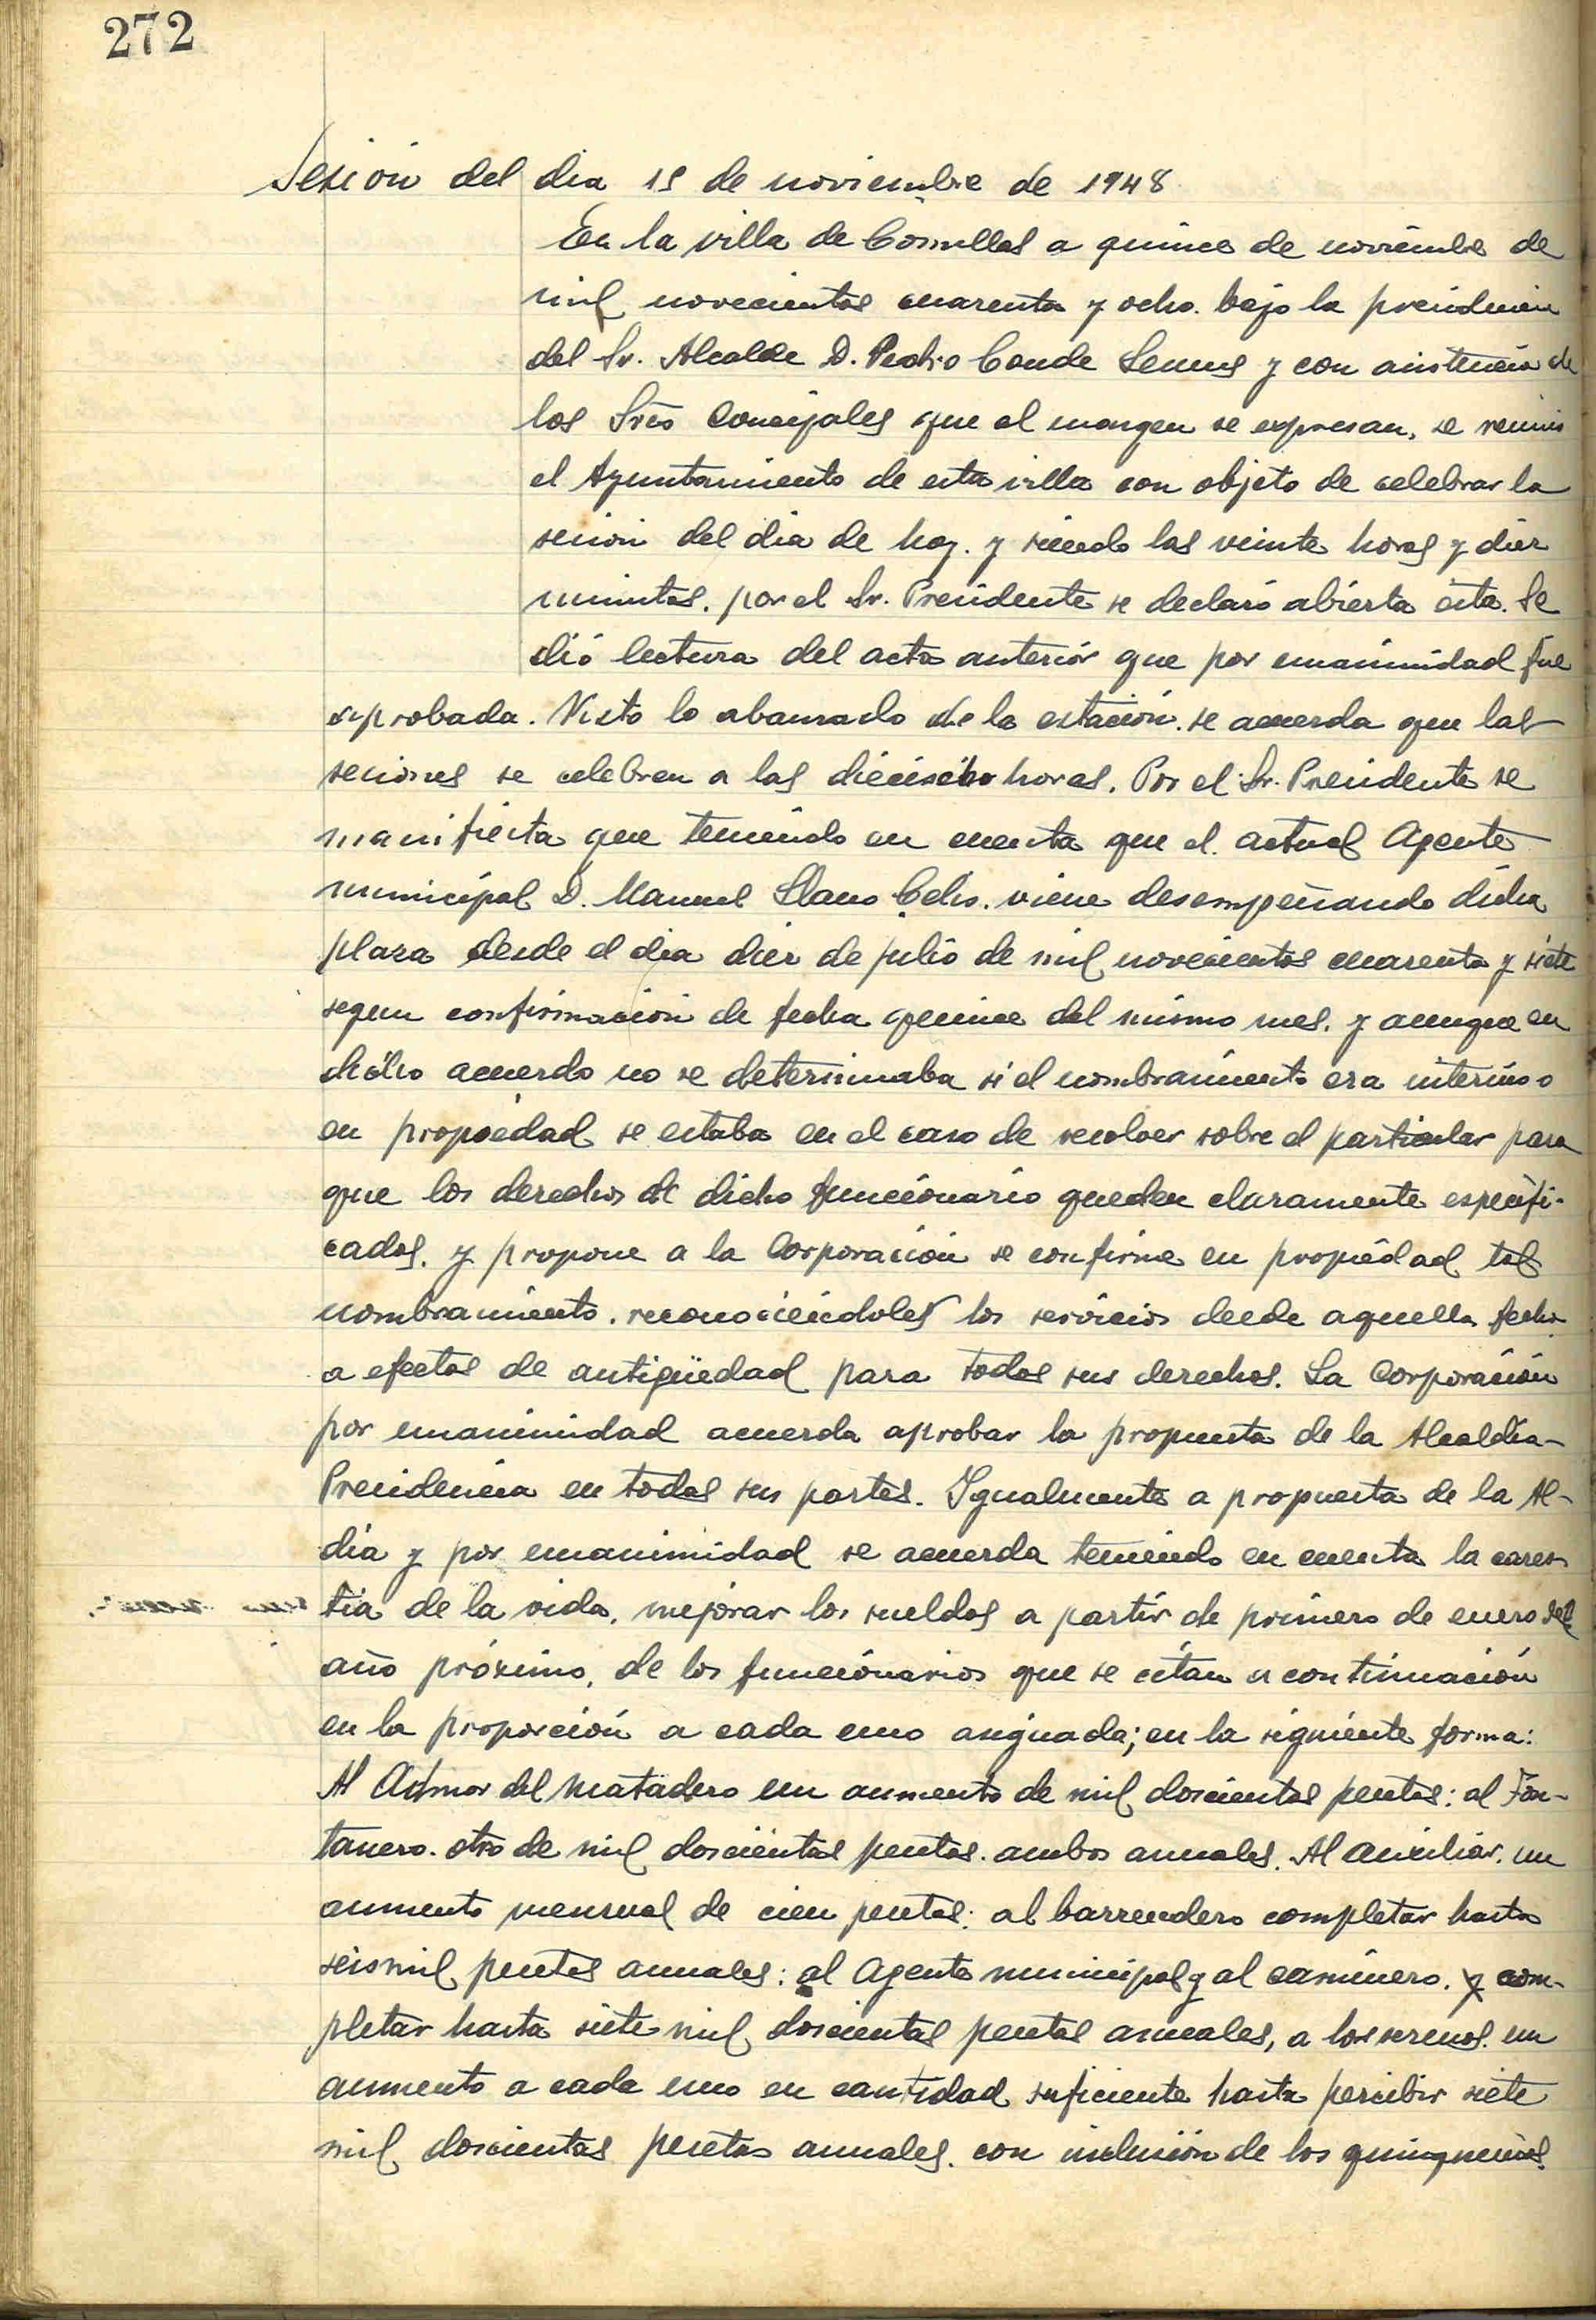 272
Sesión del dia 15 de noviembre de 1948
En la villa de Comillas a quince de noviembre de
mil novecientos cuarenta y ocho. bajo la presidencia
del Sr. Alcalde D. Pedro Conde Semus y con asistencia de
los Sres Concejales que al margen se expresan, se reunió
el Ayuntamiento de esta villa con objeto de celebrar la
sesión del dia de hoy. y siendo las veinte horas y diez
minutos. por el Sr. Presidente se declaró abierta ésta. Se
dió lectura del acta anterior que por unanimidad fue
aprobada. Visto lo abanzado de la estación. se acuerda que las
sesiones se celebren a las dieciocho horas. Por el Sr. Presidente se
manifiesta que teniendo en cuenta que el actual Agente
municipal D. Manuel Llano Celis. viene desempeñando dicha
plaza desde el dia diez de julio de mil novecientos cuarenta y siete
segun confirmación de fecha quince del mismo mes. y aunque en
dicho acuerdo no se determinaba si el nombramiento era interino o
en propiedad se estaba en el caso de resolver sobre el particular para
que los derechos de dicho funcionario queden claramente especifi-
cados. y propone a la Corporación se confirme en propiedad tal
nombramiento. reconociéndoles los servicios desde aquella fecha
a efectos de antigüedad para todos sus derechos. La Corporación
por unanimidad acuerda aprobar la propuesta de la Alcaldía-
Presidencia en todas sus partes. Igualmente a propuesta de la Al-
dia y por unanimidad se acuerda teniendo en cuenta la cares-
tia de la vida. mejorar los sueldos a partir de primero de enero del
año próximo. de los funcionarios que se citan a continuación
en la proporción a cada uno asignada; en la siguiente forma:
Al Admor del Matadero un aumento de mil doscientas pesetas: al Fon-
tanero. otro de mil doscientas pesetas. ambos anuales. Al auxiliar. un
aumento mensual de cien pesetas: al barrendero completar hasta
seis mil pesetas anuales: al Agente municipal y al caminero. y com-
pletar hasta siete mil doscientas pesetas anuales, a los serenos. un
aumento a cada uno en cantidad suficiente hasta percibir siete
mil doscientas pesetas anuales. con inclusión de los quinquenios.